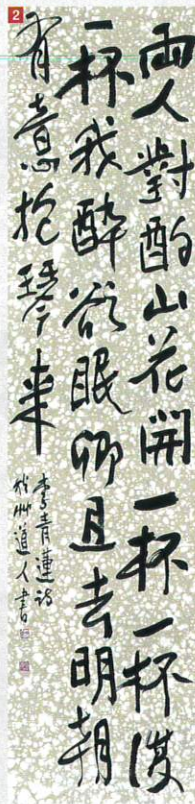 2
兩人對酌山花開一杯一杯復
一杯我醉欲眠卿且去明朝
有意抱琴来
李青蓮詩
道人書